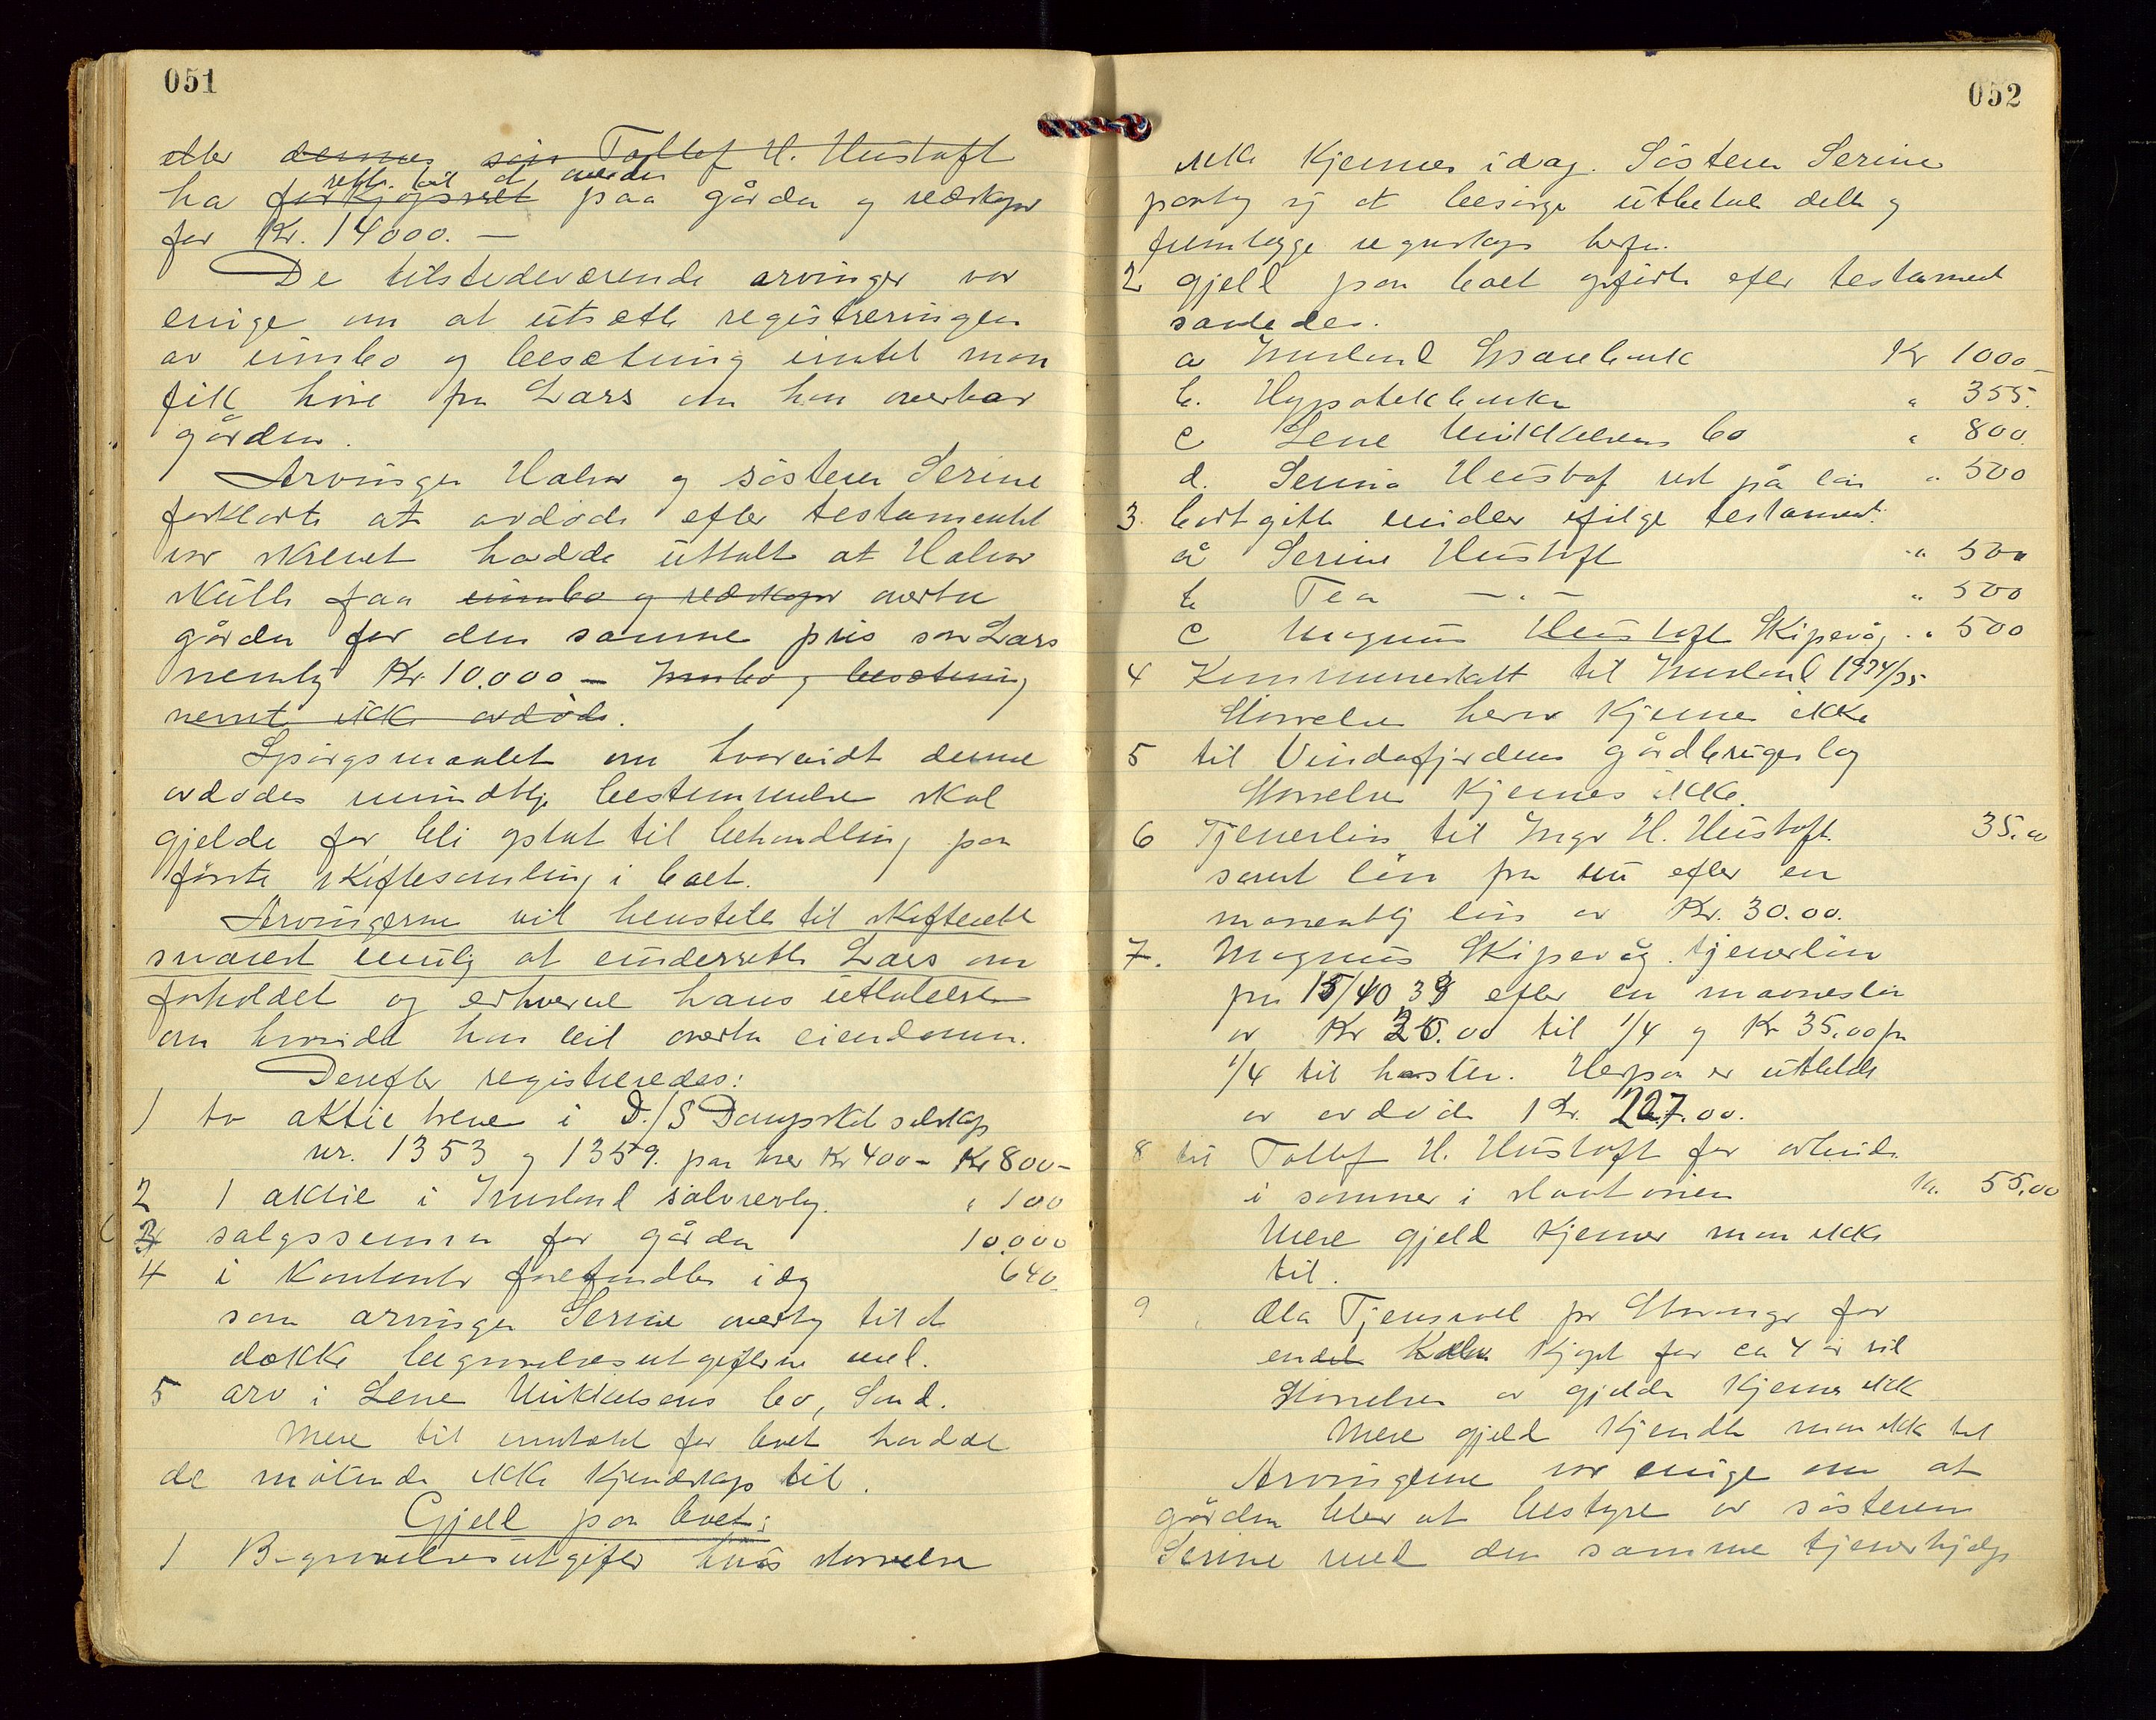 051
eller dennes søn Tollef H. Hustoft
rett til å overta
ha forkjøpsret paa gården og redskaper
for Kr. 14000. —
De tilstedeværende arvinger var
enige om at utsætte registreringen
av innbo og besætning inntil man
fik høre fra Lars om han overtar
gården.
Arvingen Halvor og søsteren Serine
forklarte at avdøde efter testamentet
var skrevet hadde uttalt at Halvor
skulle faa innbo og redskaper overta
gården for den samme pris som Lars
nemlig Kr 10.000 — Innbo og besætning
nevnte ikke avdøde.
Spørgsmaalet om hvorvidt denne
avdødes mundtlige bestemmelse skal
gjelde får bli optat til behandling paa
første skiftesamling i boet.
Arvingerne vil henstille til skifteretten
snarest mulig at underrette Lars om
forholdet og erhverve hans uttalelse
om hvorvidt han vil overta eiendommen.
Derefter registreredes:
1 to aktiebrev i D./S Dampskibsselskap
nr. 1353 og 1359. paa hver Kr 400 - Kr 800 -
2 1 aktie i Imsland sølvrevlag. " 100
3 salgssummen for gården 10.000
4 i kontanter forefundtes idag 640.
som arvingen Serine overtog til at
dække begravelsesutgifterne med.
5 arv i Lene Mikkelsens bo, Sand.
Mere til inntækt for boet hadde
de møtende ikke kjendskap til.
Gjeld paa boet:
1 Begravelsesutgifter hvis størrelse
052
ikke kjennes idag. Søsteren Serine
paatog sig at besørge utbetalt dette og
fremlægge regnskap herfor.
2 gjeld paa boet opført efter testament
saaledes.
a Imsland Sparebank Kr 1000 -
b. Hypotekbanken " 355.
c Lene Mikkelsens bo " 800.
d. Serina Hustoft rest på lån " 500
3. bortgitte midler ifølge testament.
a Serine Hustoft " 500
b Tea — " — " 500
c Magnus Hustoft Skipevåg . " 500
4 Kommuneskatt til Imsland 1934/35
Størrelsen herav kjennes ikke
5 til Vindafjordens gårdbrugerlag
Størrelsen kjennes ikke.
6 Tjenerløn til Inga H. Hustoft 35.00
samt løn fra nu efter en
maanentlig løn av Kr. 30.00.
7. Magnus Skipevåg. tjenerløn
fra 15/10 38 efter en maanesløn
av Kr 25.00 til 1/4 og Kr 35.00 fra
1/4 til høsten. Herpaa er utbetalt
av avdøde Kr. 227.00.
8 til Tollef H. Hustoft for arbeide
i sommer i slaatonnen Kr. 55,00
Mere gjeld kjenner man ikke
til.
9 Ola Tjensvoll pr Stavanger for
endel Kalv kjøpt for ca 4 år sid
Størrelsen av gjelden kjennes ikke
Mere gjeld kjendte man ikke til
Arvingerne var enige om at
gården blev at bestyre av søsteren
Serine med den samme tjenerhjelp